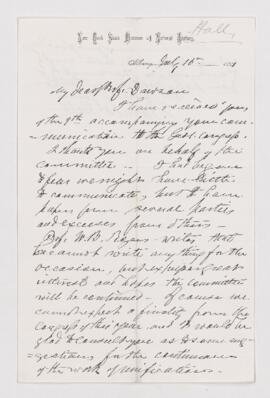 Hall
New York State Museum of Natural History,
Albany, July 16 1881
My dear Prof. Dawson
I have received yours
of the 9th accompanying your com-
munication to the Geol. Congress.
I thank you on behalf of the
committee.
I fear we might have little
to communicate, but I have
papers from several parties
and excuses from others
Prof. W. B. Rogers writes that
he cannot write anything for the
occasion, but expresses great
interest and hopes the committee
will be continued. Of course we
cannot expect a finality from the
Congress of this year and I would be
glad to consult you as to some sug-
gestions for the continuance
of the work of unification.